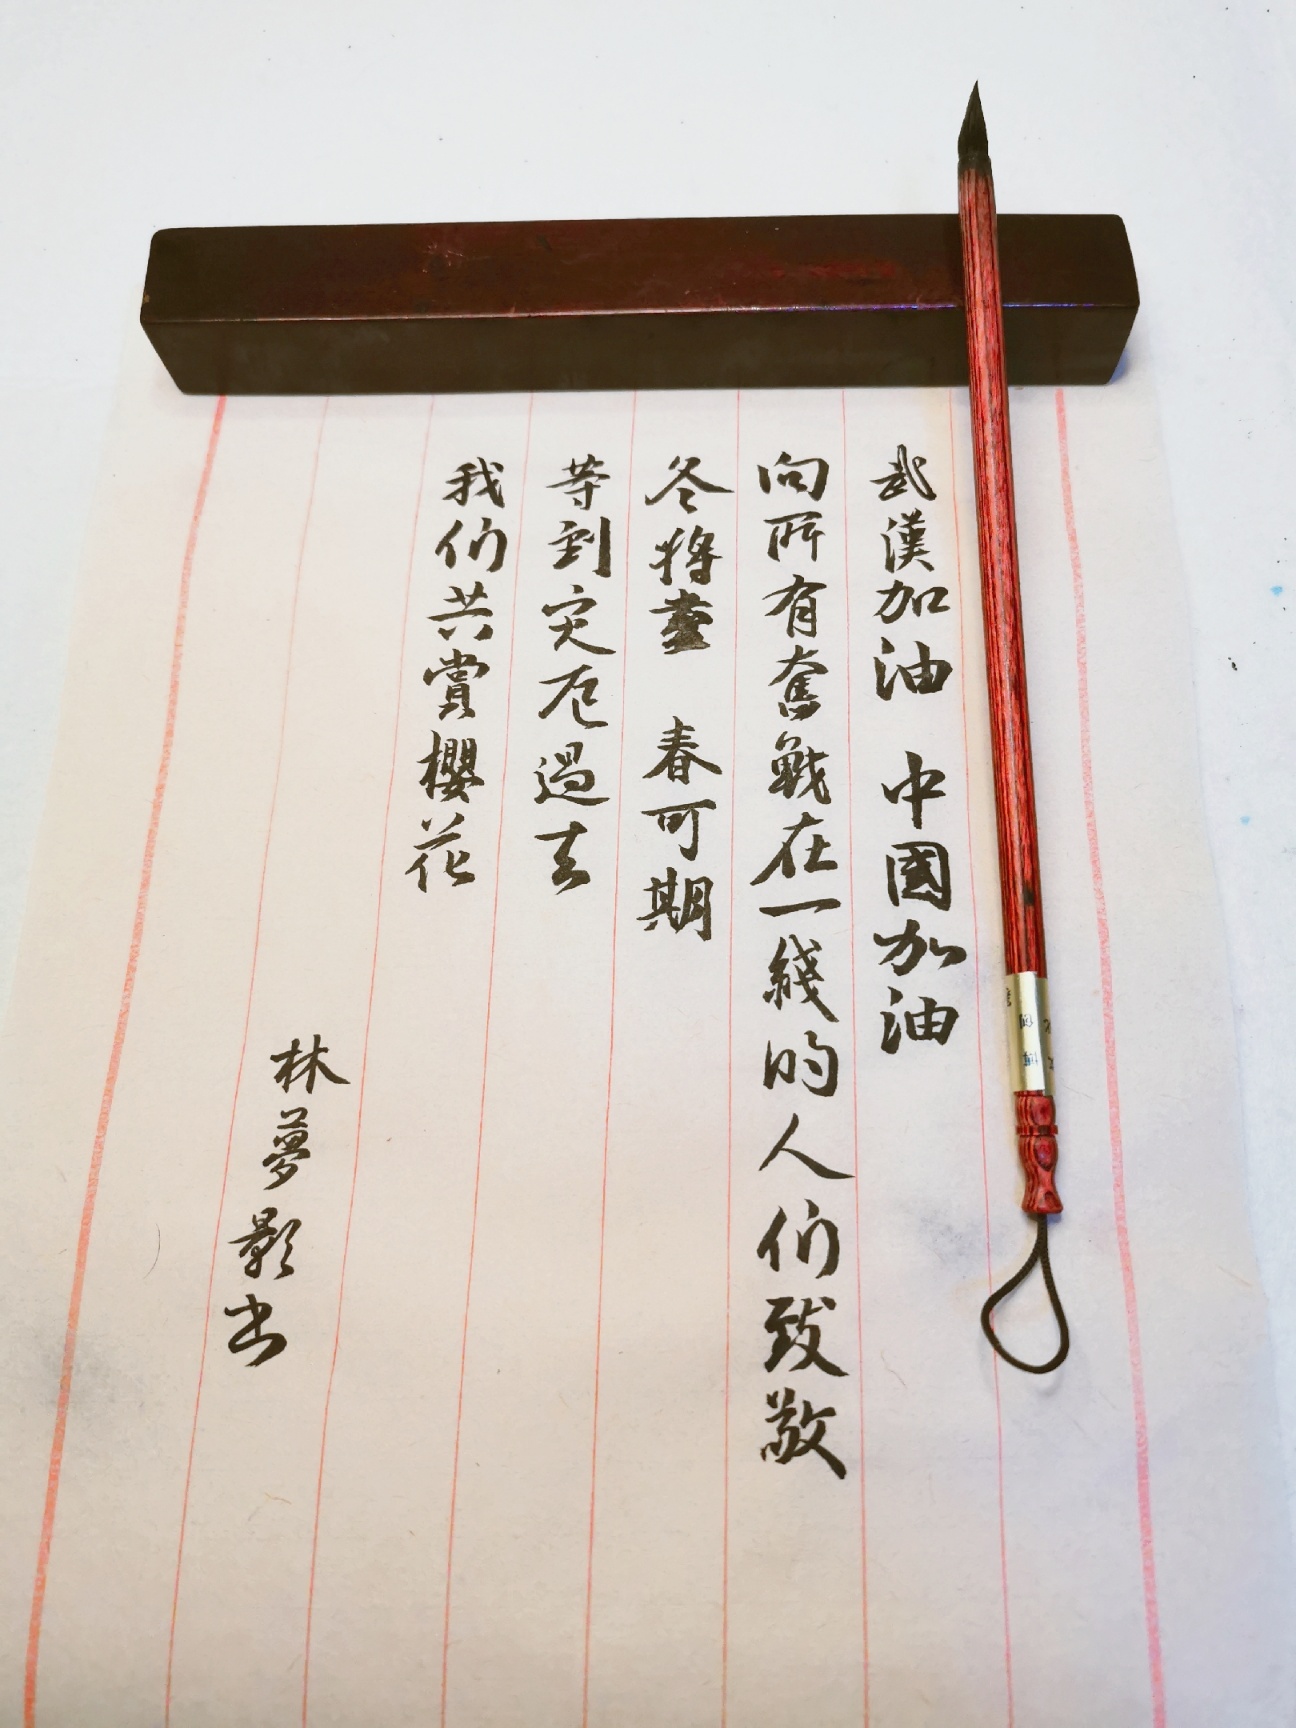 武漢加油 中國加油
向所有奮戰在一綫的人们致敬
冬将盡 春可期
等到灾厄過去
我们共賞櫻花
林夢影书